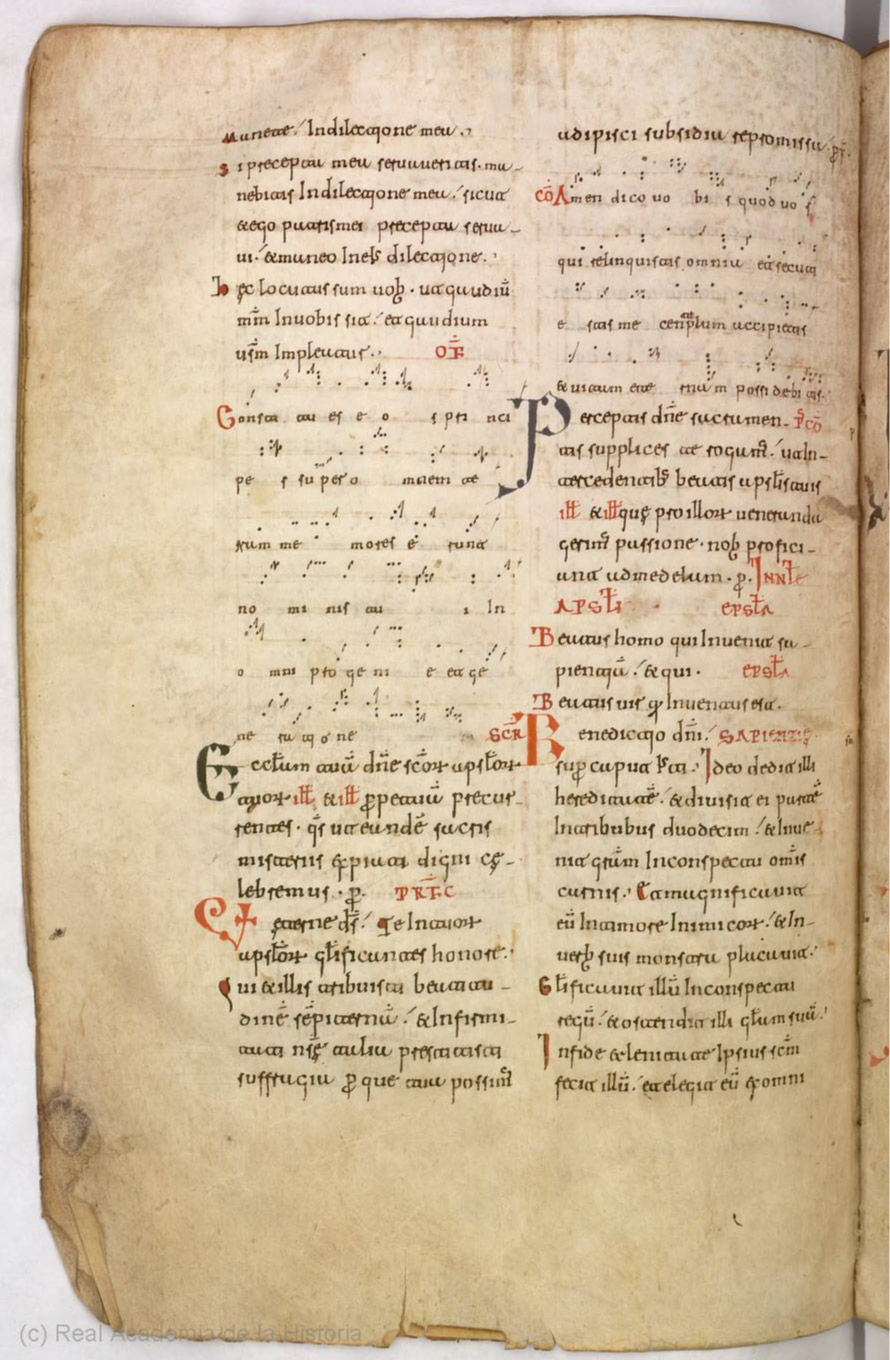 Manete. In dilectione mea.
Si precepta mea servaveritis. ma-
nebitis In dilectione mea. sicut
& ego patris mei precepta serva-
vi. & maneo In eis dilectione.
Hęc locutus sum vob. ut gaudiū
mm̄ In vobis sit. et gaudium
usm̄ Impleatur. OF̄
Consti tu es e o s prin ci
pe s super o mnem te
rram me mores e runt
no mi nis tu i In
o mni pro ge ni e et ge
ne ra ti o ne SCR̄
Ecclam tuū dn̄e scōr apstlor
tuor ill. & ill. p̄petuū precur-
rentes. qs ut eundē sacris
misteriis expiati digni cę-
lebremus. p̄. PRF̄C
VD ęterne ds̄. Te In tuor
apstlor glificantes honore.
Qui & illis tribuisti beatitu-
dinē sēpiternū. & Infirmi-
tati nrę talia prestitisti
suffragia p̄ que tua possim̄
adipisci subsidia repromissa. p̄.
CŌ Amen dico vo bi s quod vo s
qui relinquistis omnia et secuti
e stis me centuplum accipietis
& vitam ete rna m possidebitis.
Perceptis dn̄e sacramen- PCŌ
tis supplices te rogam̄. ut In-
tercedentib beatis apstlis tuis
ill & ill que pro illor veneranda
gerim̄ passione. nob profici-
unt ad medelam. p̄. IN NTL
APSTLI EPSTLA
Beatus homo qui Invenit sa-
pientiā. & qui. EPSTLA
Beatus vir q̄ Inventus est.
Benedictio dn̄i. SAPIENTIE
sup caput Isti. Ideo dedit illi
hereditatē. & divisit ei partē
In tribubus duodecim. & Inve-
nit grām In conspectu om̄is
carnis. Et magnificavit
eū In timore Inimicor. & In-
verb suis monstra placavit.
Glificavit illū In conspectu
regū. & ostendit illi glam suā.
In fide & lenitate Ipsius scm̄
fecit illū. et elegit eū ex omni
(c) Real Academia de la Historia